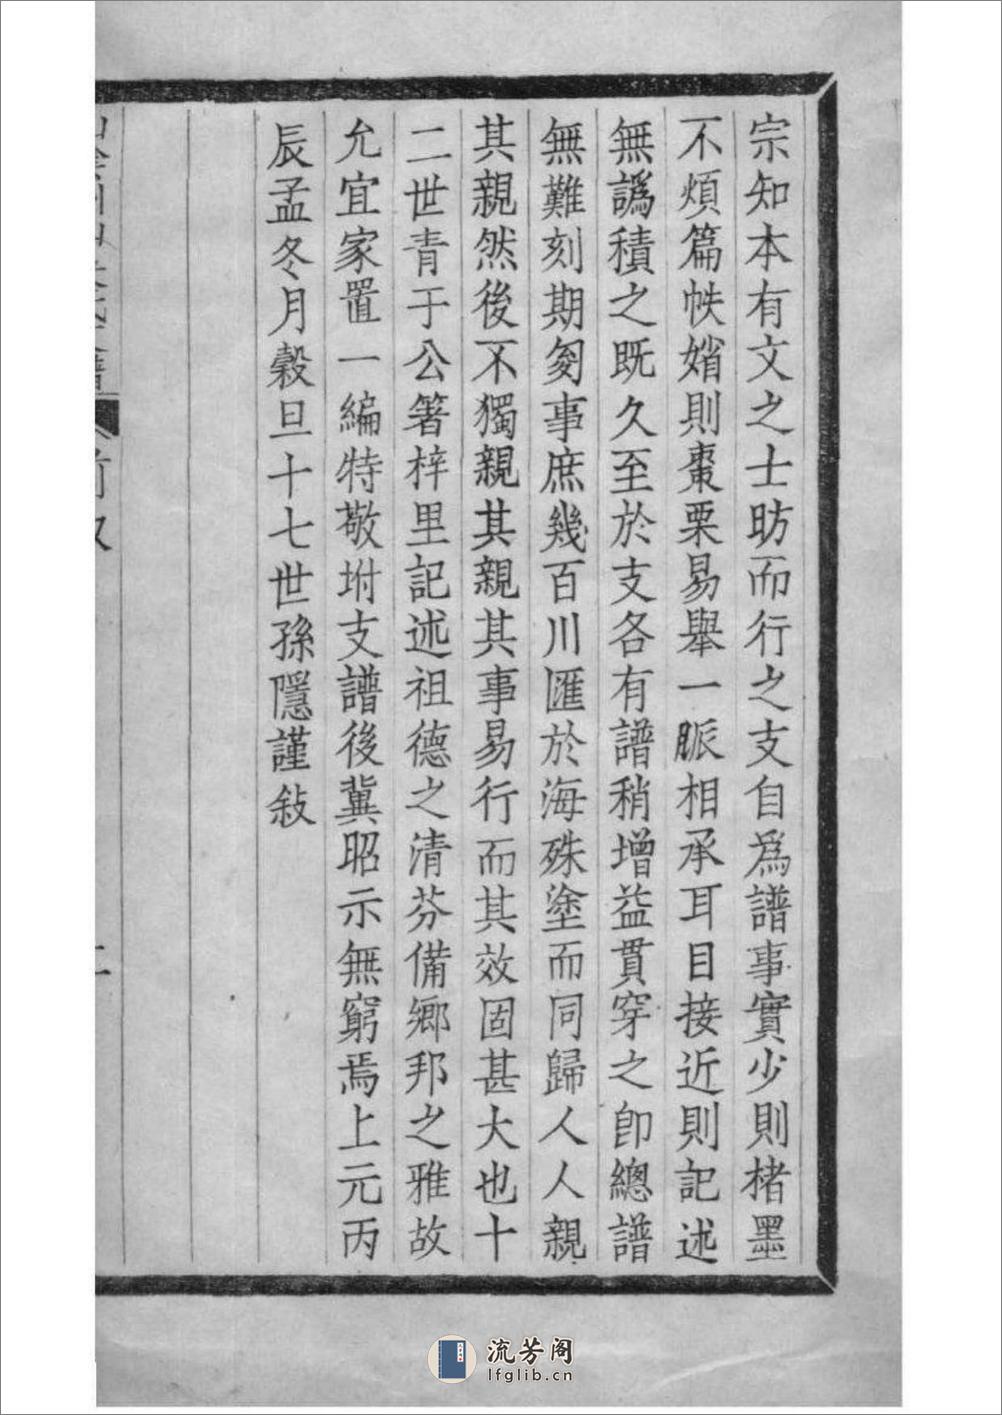 宗知本有文之士昉而行之支自爲譜事實少則楮墨
不煩篇帙媘則棗栗易舉一脈相承耳目接近則記述
無譌積之既久至於支各有譜稍增益貫穿之卽總譜
無難刻期匇事庶幾百川匯於海殊塗而同歸人人親
其親然後不獨親其親其事易行而其效固甚大也十
二世青于公箸梓里記述祖德之清芬備鄉邦之雅故
允宜家置一編特敬坿支譜後冀昭示無窮焉上元丙
辰孟冬月穀旦十七世孫隱謹敍
流芳阁
lfglib.cn